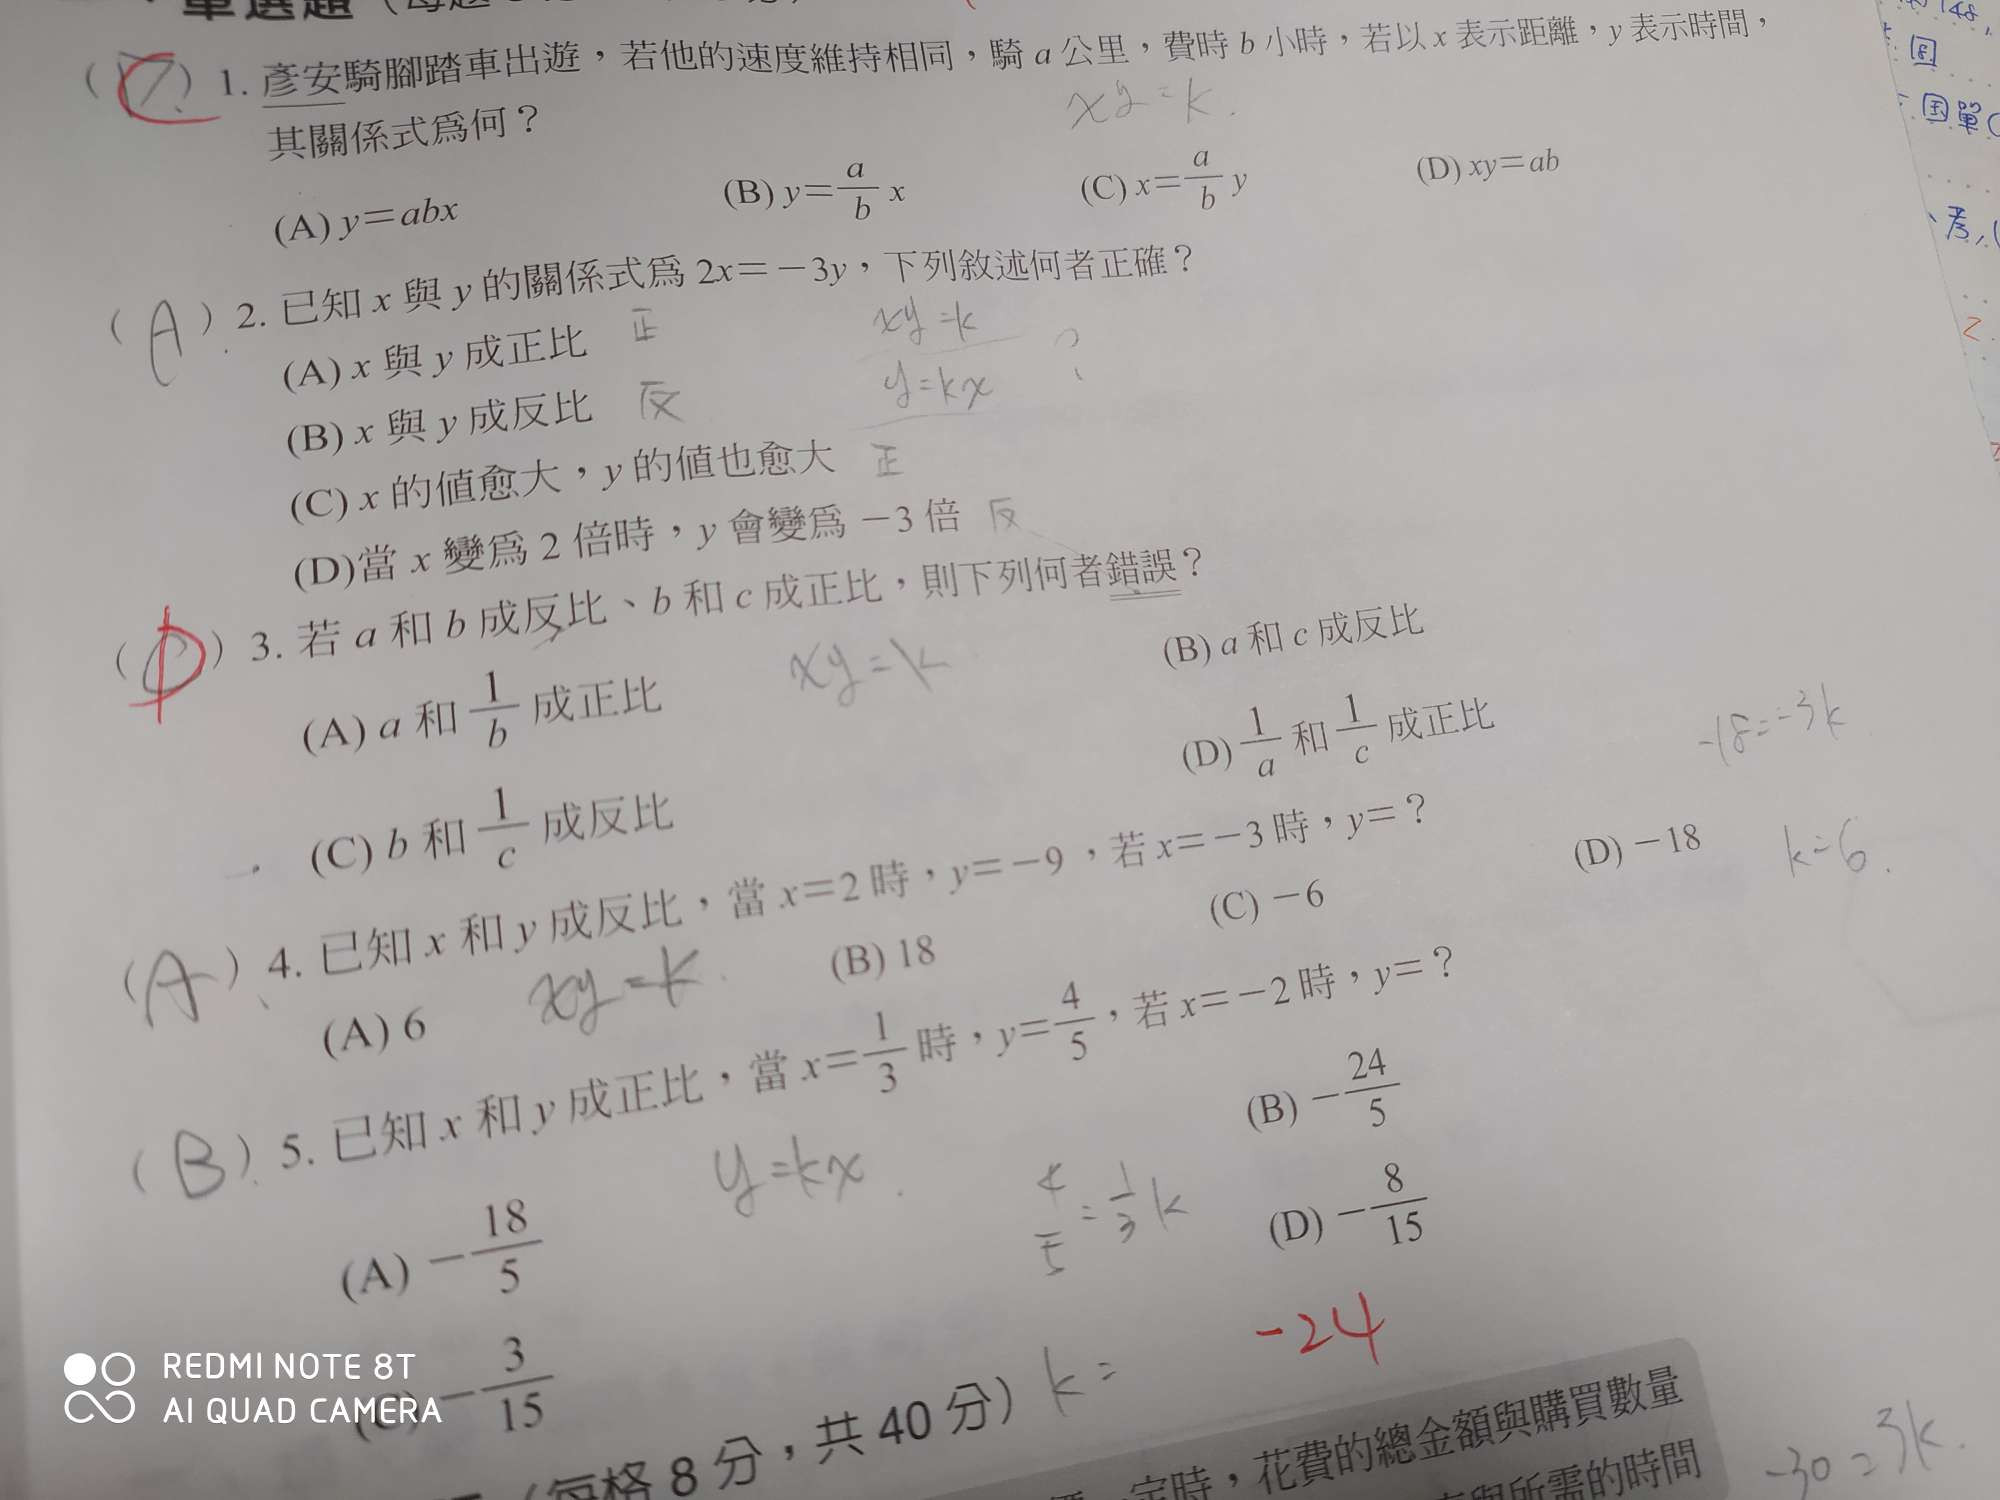 單選題
(C) 1. 彥安騎腳踏車出遊，若他的速度維持相同，騎 a 公里，費時 b 小時，若以 x 表示距離，y 表示時間，
其關係式為何？
xy=k.
(A) y=abx (B) y=a/b x (C) x=a/b y (D) xy=ab
(A) 2. 已知 x 與 y 的關係式為 2x=-3y，下列敘述何者正確？
(A) x 與 y 成正比 正 xy=k
(B) x 與 y 成反比 反 y=kx ?
(C) x 的值愈大，y 的值也愈大 正
(D)當 x 變為 2 倍時，y 會變為 -3 倍 反
(D) 3. 若 a 和 b 成反比、b 和 c 成正比，則下列何者錯誤？
(A) a 和 1/b 成正比 xy=k (B) a 和 c 成反比
(C) b 和 1/c 成反比 (D) 1/a 和 1/c 成正比
-18=-3k
k=6.
(A) 4. 已知 x 和 y 成反比，當 x=2 時，y=-9，若 x=-3 時，y=？
(A) 6 (B) 18 (C) -6 (D) -18
xy=k.
(B) 5. 已知 x 和 y 成正比，當 x=1/3 時，y=4/5，若 x=-2 時，y=？
(A) -18/5 (B) -24/5
y=kx. 4/5=1/3k
(C) -3/15 (D) -8/15
k=
-24
(每格 8 分，共 40 分)
定時，花費的總金額與購買數量
與所需的時間
-30=3k.
國單
考
2
REDMI NOTE 8T
AI QUAD CAMERA